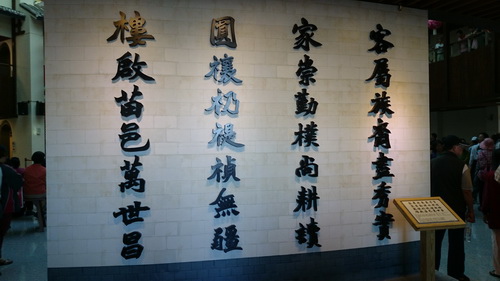 客屬族裔盡秀賁
家崇勤樸尚耕讀
圓禳礽禔禎無疆
樓啟苗邑萬世昌